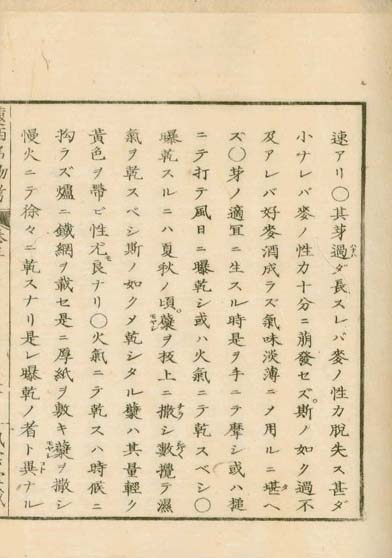 速アリ〇其芽過ダ長スレバ麥ノ性力脫失ス甚ダ
小ナレバ麥ノ性力十分ニ萠發セズ斯ノ如ク過不
及アレバ好麥酒成ラズ氣味淡薄ニメ用ルニ堪ヘ
ズ〇芽ノ適宜ニ生スル時是ヲ手ニテ摩シ或ハ槌
ニテ打テ風日ニ曝乾シ或ハ火氣ニテ乾スベシ〇
曝乾スルニハ夏秋ノ頃糵ヲ板上ニ撒シ數攪テ濕
氣ヲ乾スベシ斯ノ如クメ乾シタル糵ハ其量輕ク
黃色ヲ帶ビ性尤良ナリ〇火氣ニテ乾スハ時候ニ
拘ラズ爐ニ鐵網ヲ載セ是ニ厚紙ヲ敷キ糵ヲ撒シ
慢火ニテ徐々ニ乾スナリ是レ曝乾ノ者ト異ナル